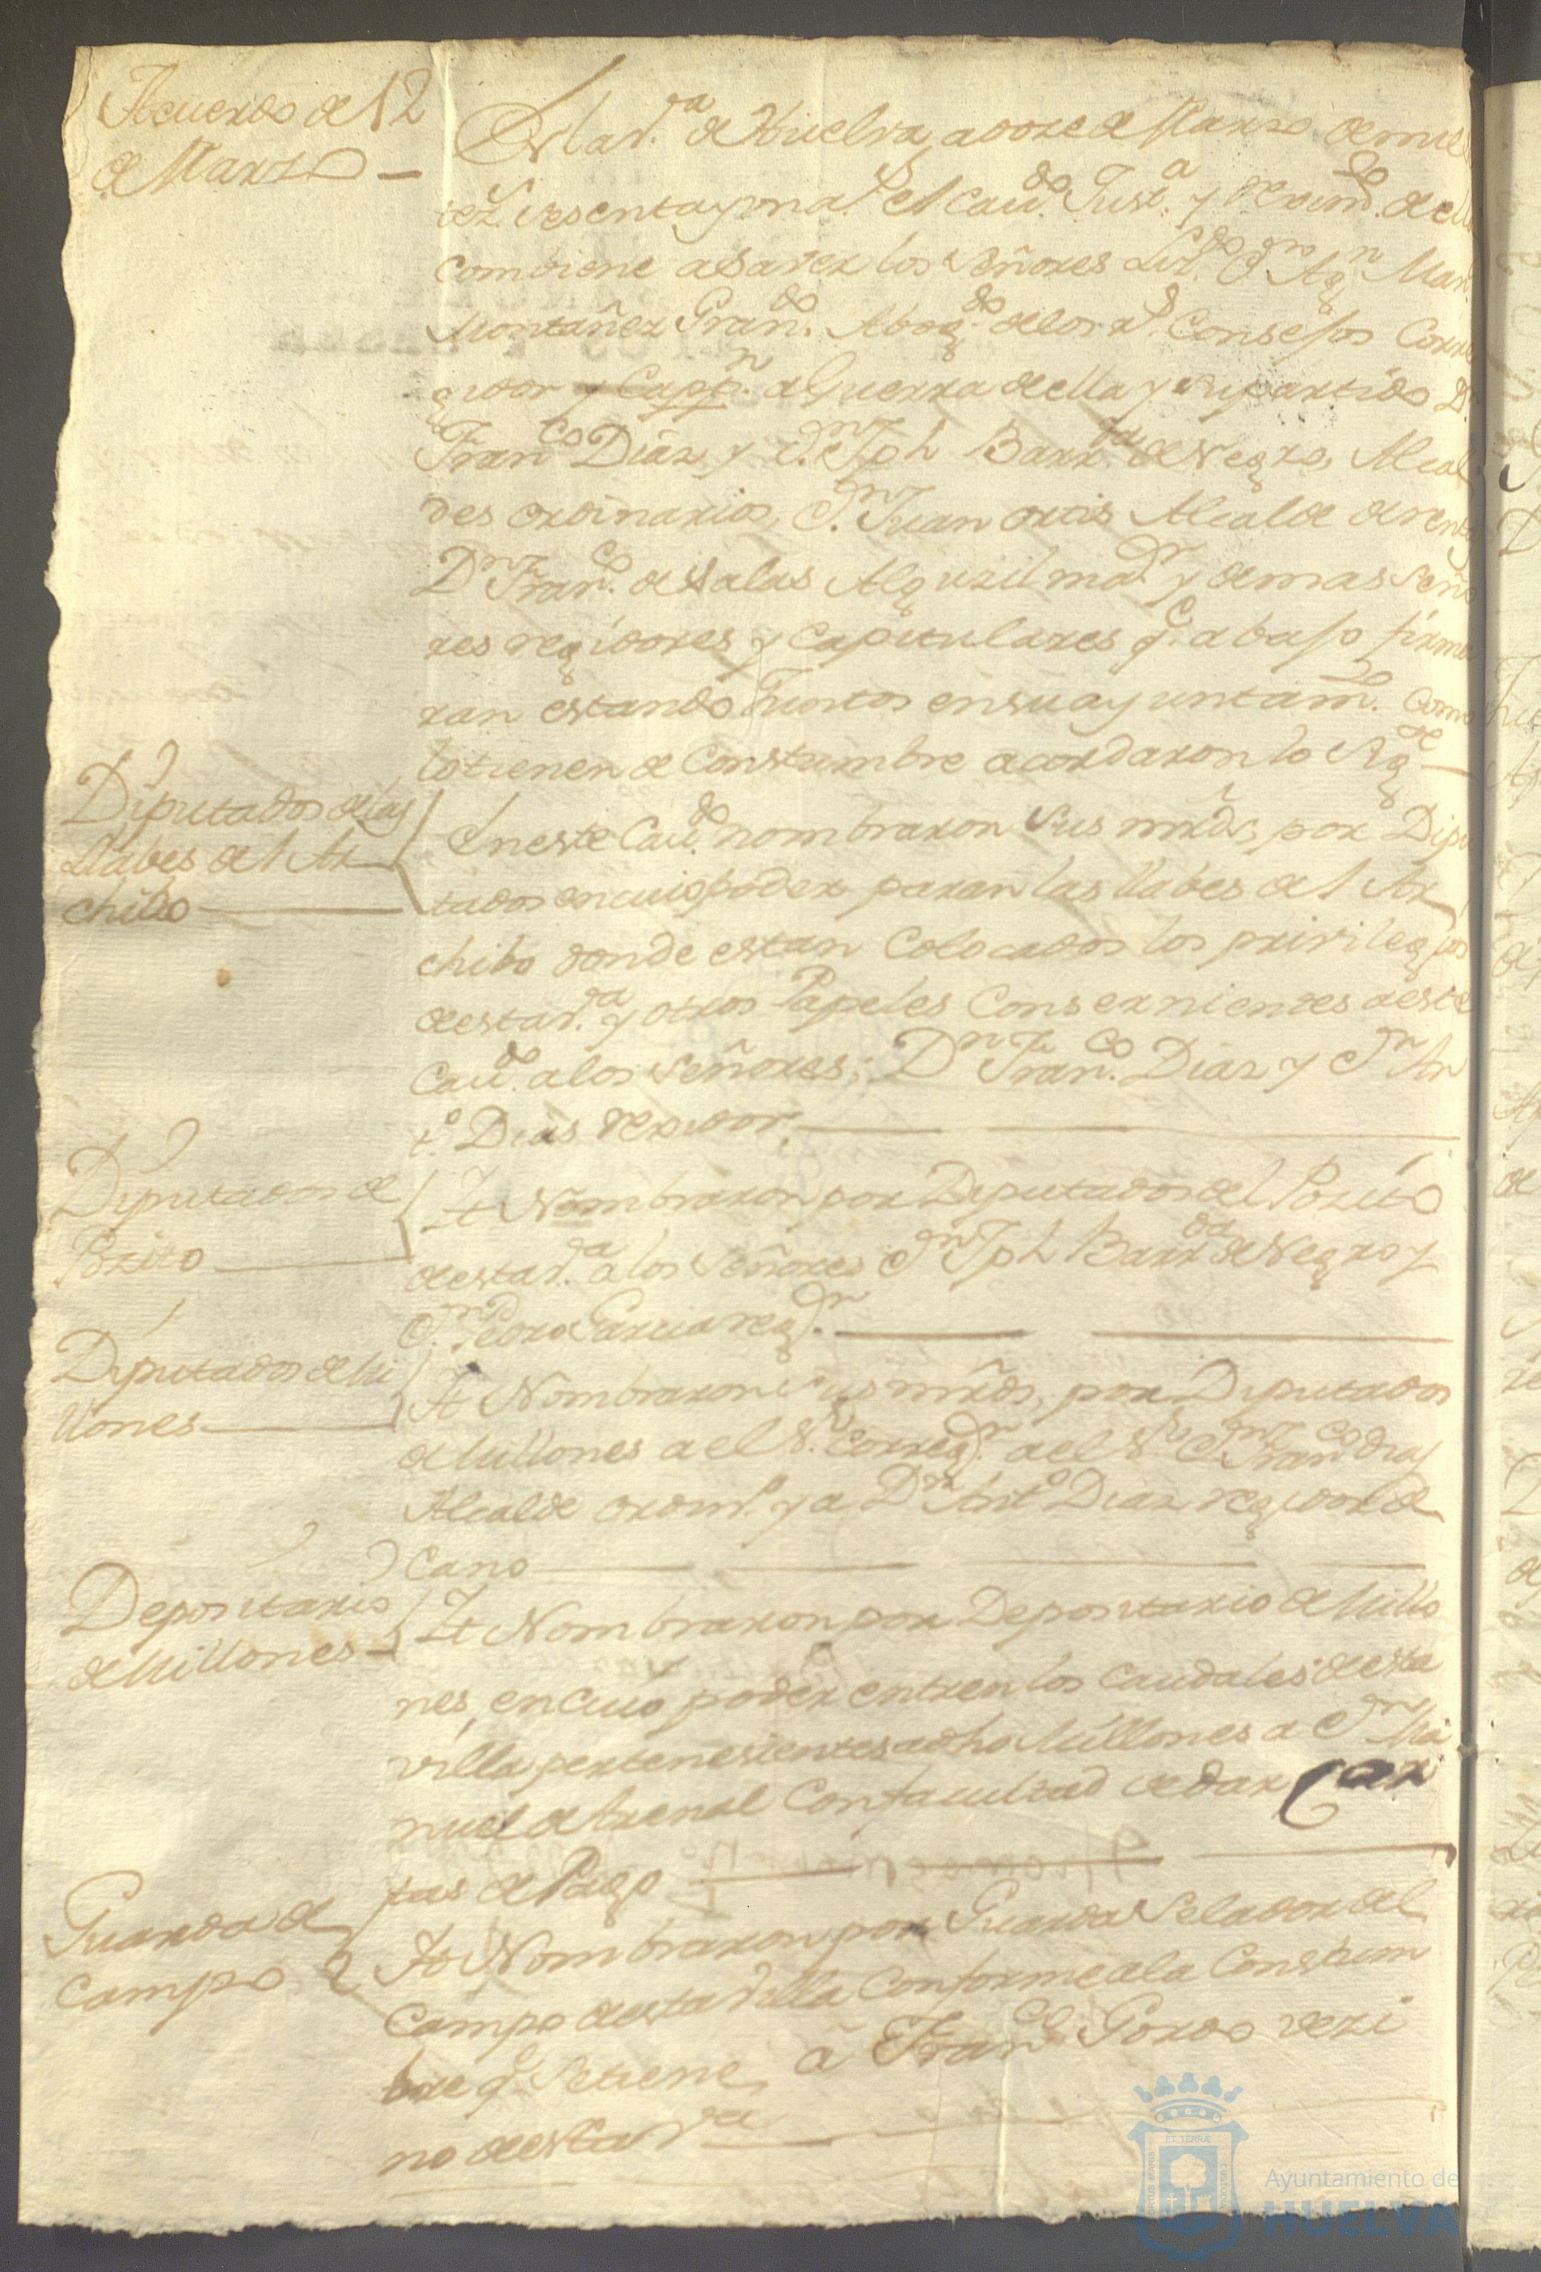 Acuerdo de 12
de Marzo
En la v.ª de Huelva, a doze de Marzo de mill
setez.s sesenta y un a.s el Cau.do Just.a y Reximi.to de ella
combiene a saver los señores Liz.do d.n Ag.n Man.l
Montañez Gran.do Abog.do de los R.s Consejos Corre
gidor y Capp.n a Guerra de ella y su partido D.n
Fran.co Diaz y d.n Jph Barr.da de Negro, Alcal
des ordinarios, d.n Juan ortis Alcalde de renta
D.n Fran.co de Salas Alguzil ma.r y demas Seño
res regidores y Capitulares q.e abajo firma
ran estando Juntos en su ayuntam.to Como
lo tienen de Constumbre acordaron lo Sig.te
Diputados de las
Llabes del Ar
chibo
En este Cau.do nombraron Sus mrds, por Dipu
tados en cuio poder paran las llabes del Ar
chibo donde estan Colocados los privilegios
de esta v.ª y otros Papeles Consernientes a este
Cau.do a los Señores; D.n Fran.co Diaz y d.n An
t.o Dias rexidor
Diputados de
Pozito
It Nombraron por Diputados del Pozito
de esta v.ª a los Señores d.n Jph Barr.da de Negro y
d.n Pedro Garcia reg.r
Diputados de Mi
llones
It Nombraron Sus mrds, por Diputados
de Millones a el S.r Correg.r a el S.r d.n Fran.co dias
Alcalde ordin.o y a D.n Ant.o Diaz regidor de
cano
Depositario
de Millones
It Nombraron por Depositario de Millo
nes, en cuio poder entren los caudales de esta
villa pertenesientes a dho Millones a d.n Ma
nuel de Arenal Con facultad de dar Car
tas de Pago
Guarda de
Campo
It Nombraron por Guarda Selador del
Campo de esta Villa Conforme a la Constum
bre q.e Se tiene, a Fran.co Gordo vezi
no de esta v.ª
ET TERRÆ
PORTUS MARIS
CUSTODIA
Ayuntamiento de
HUELVA